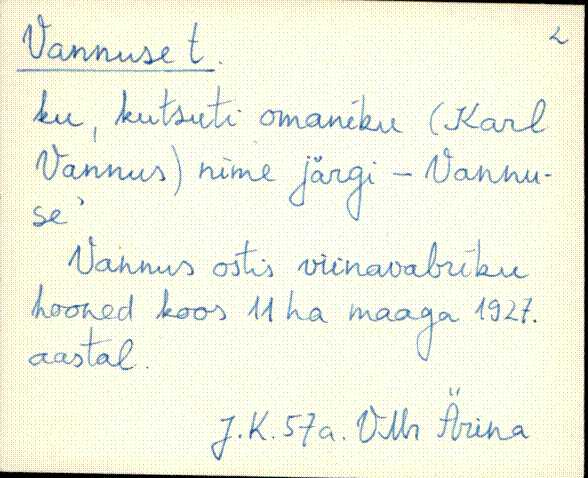 2
Vannuse t.
ku, kutsuti omaniku (Karl
Vannus) nime järgi – Vannu-
se
Vannus ostis viinavabriku
hooned koos 11 ha maaga 1927.
aastal.
J.K. 57a. VMr Ärina